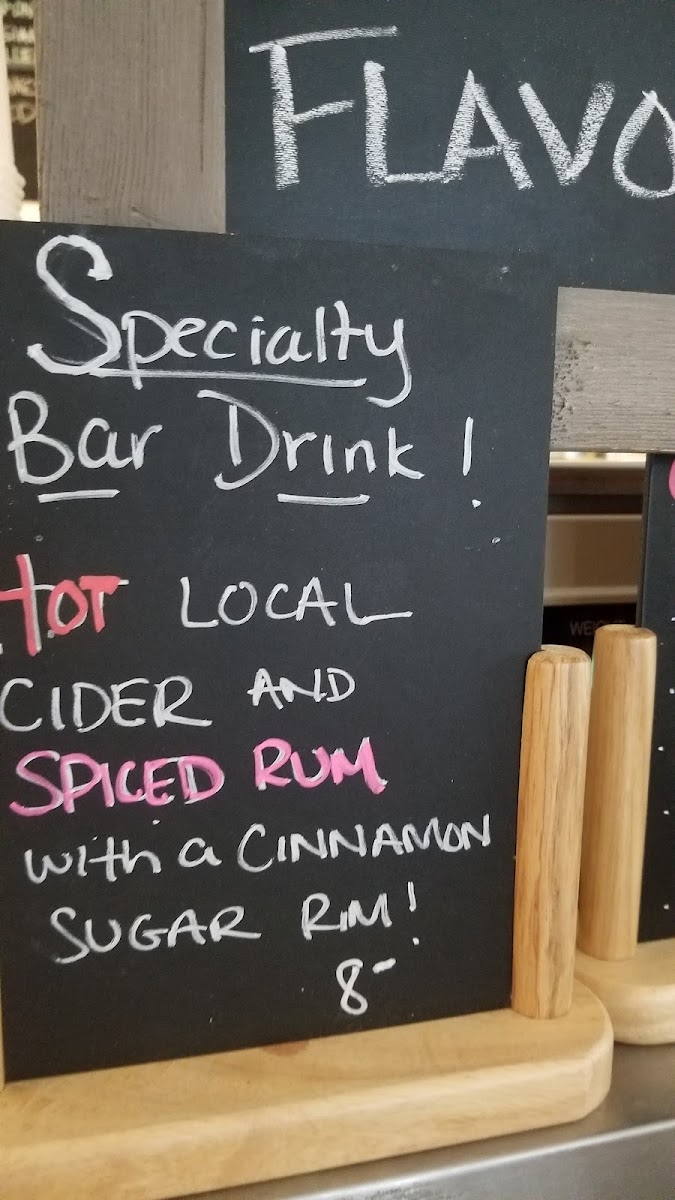 FLAVO
Specialty
Bar Drink!
HOT LOCAL
CIDER AND
SPICED RUM
with a CINNAMON
SUGAR RIM!
8-